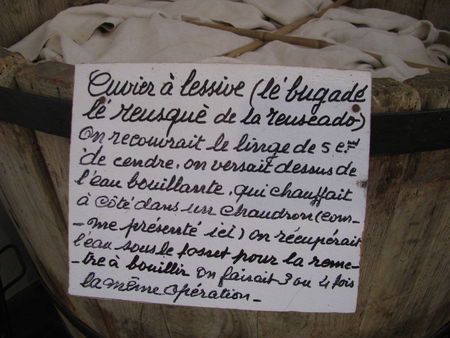 Cuvier à lessive (lé bugadé
lé reusquè de la reuseado)
On recouvrait le linge de 5 c.m
de cendre, on versait dessus de
l'eau bouillante, qui chauffait
à côté dans un chaudron (com-
-me présenté ici) on récupérait
l'eau sous le fosset pour la reme-
-tre à bouillir on faisait 3 ou 4 fois
la même opération-